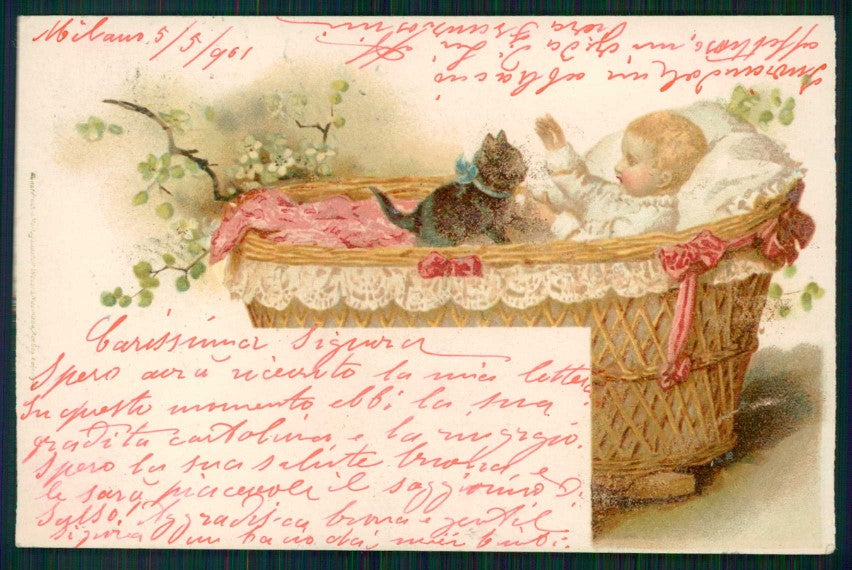 Milano 5/5/901
Carissima Signora
Spero avrà ricevuto la mia lettera
In questo momento ebbi la sua
gradita cartolina e la ringrazio.
Spero la sua salute buona e
le sarà piacevole il soggiorno di
Salso! Aggradisca buona e gentil
Signora un bacio dai miei bimbi.
Mandole, un abbraccio
affettuoso, mi creda di Lei